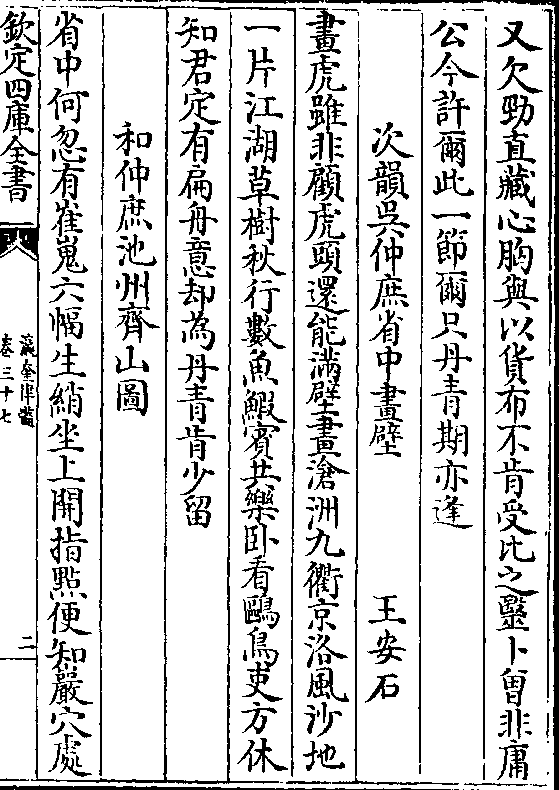 又欠勁直藏心胸與以貨布不肯受比之毉卜曾非庸
公今許爾此一節爾只丹青期亦逢
次韻吳仲庶省中畫壁　王安石
畫虎雖非顧虎頭還能滿壁畫滄洲九衢京洛風沙地
一片江湖草樹秋行數魚鰕賓共樂卧看鷗鳥吏方休
知君定有扁舟意却為丹青肯少留
和仲庶池州齊山圖
省中何忽有崔嵬六幅生綃坐上開指㸃便知巖穴處
欽定四庫全書
瀛奎律髓
卷三十七
二